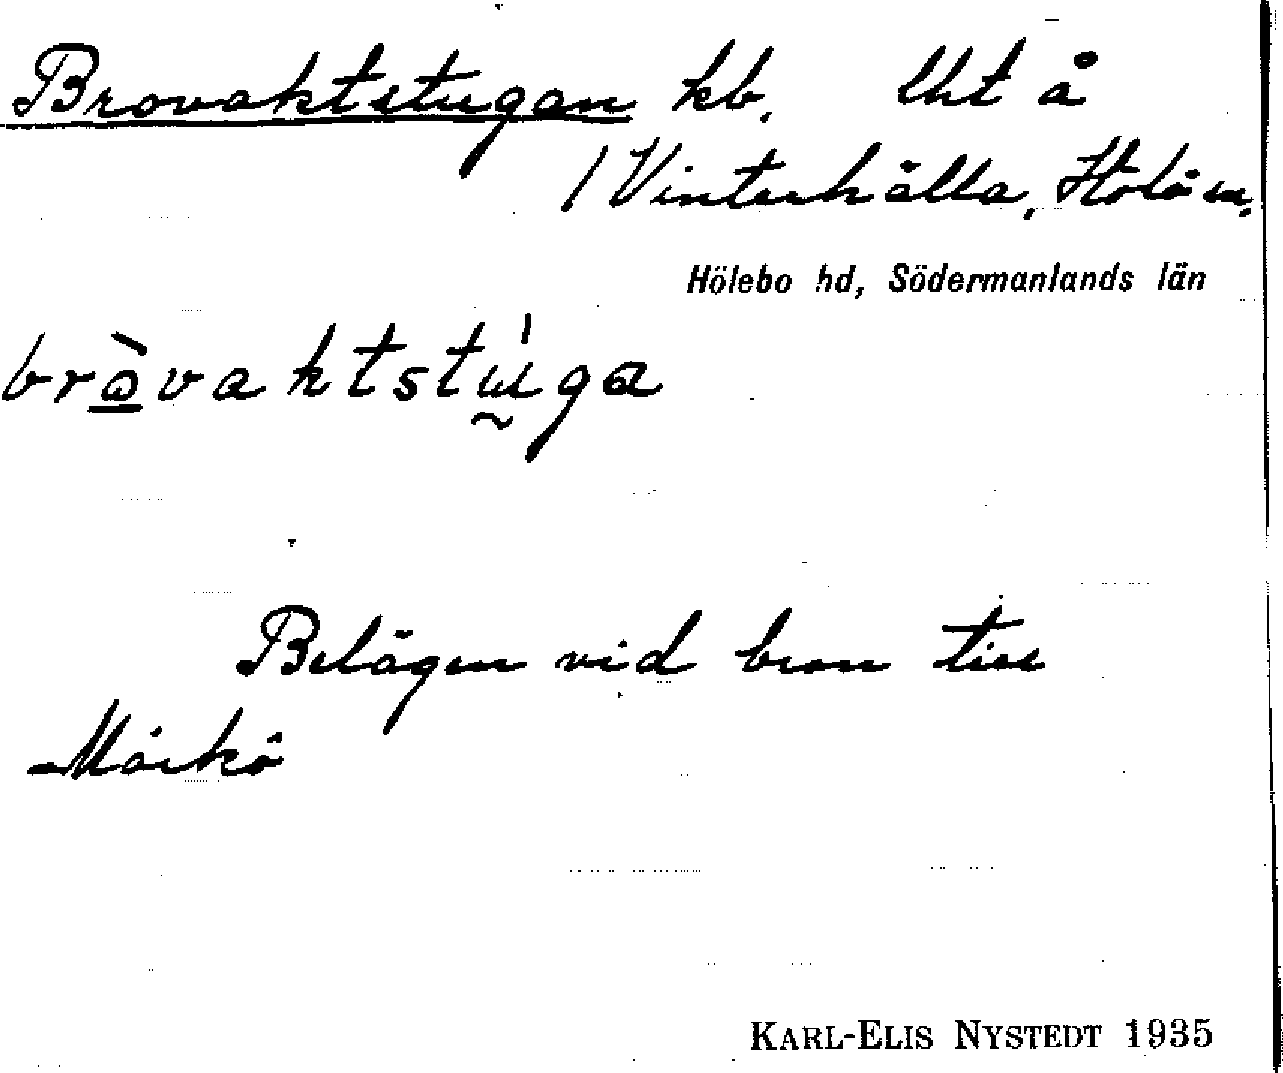 Brovaktstugan kb. Uht å
/Vinterhälla, Hölö sn,
Hölebo hd, Södermanlands län
bròvaktstúga
Belägen vid bron till
Mörkö
KARL-ELIS NYSTEDT 1935